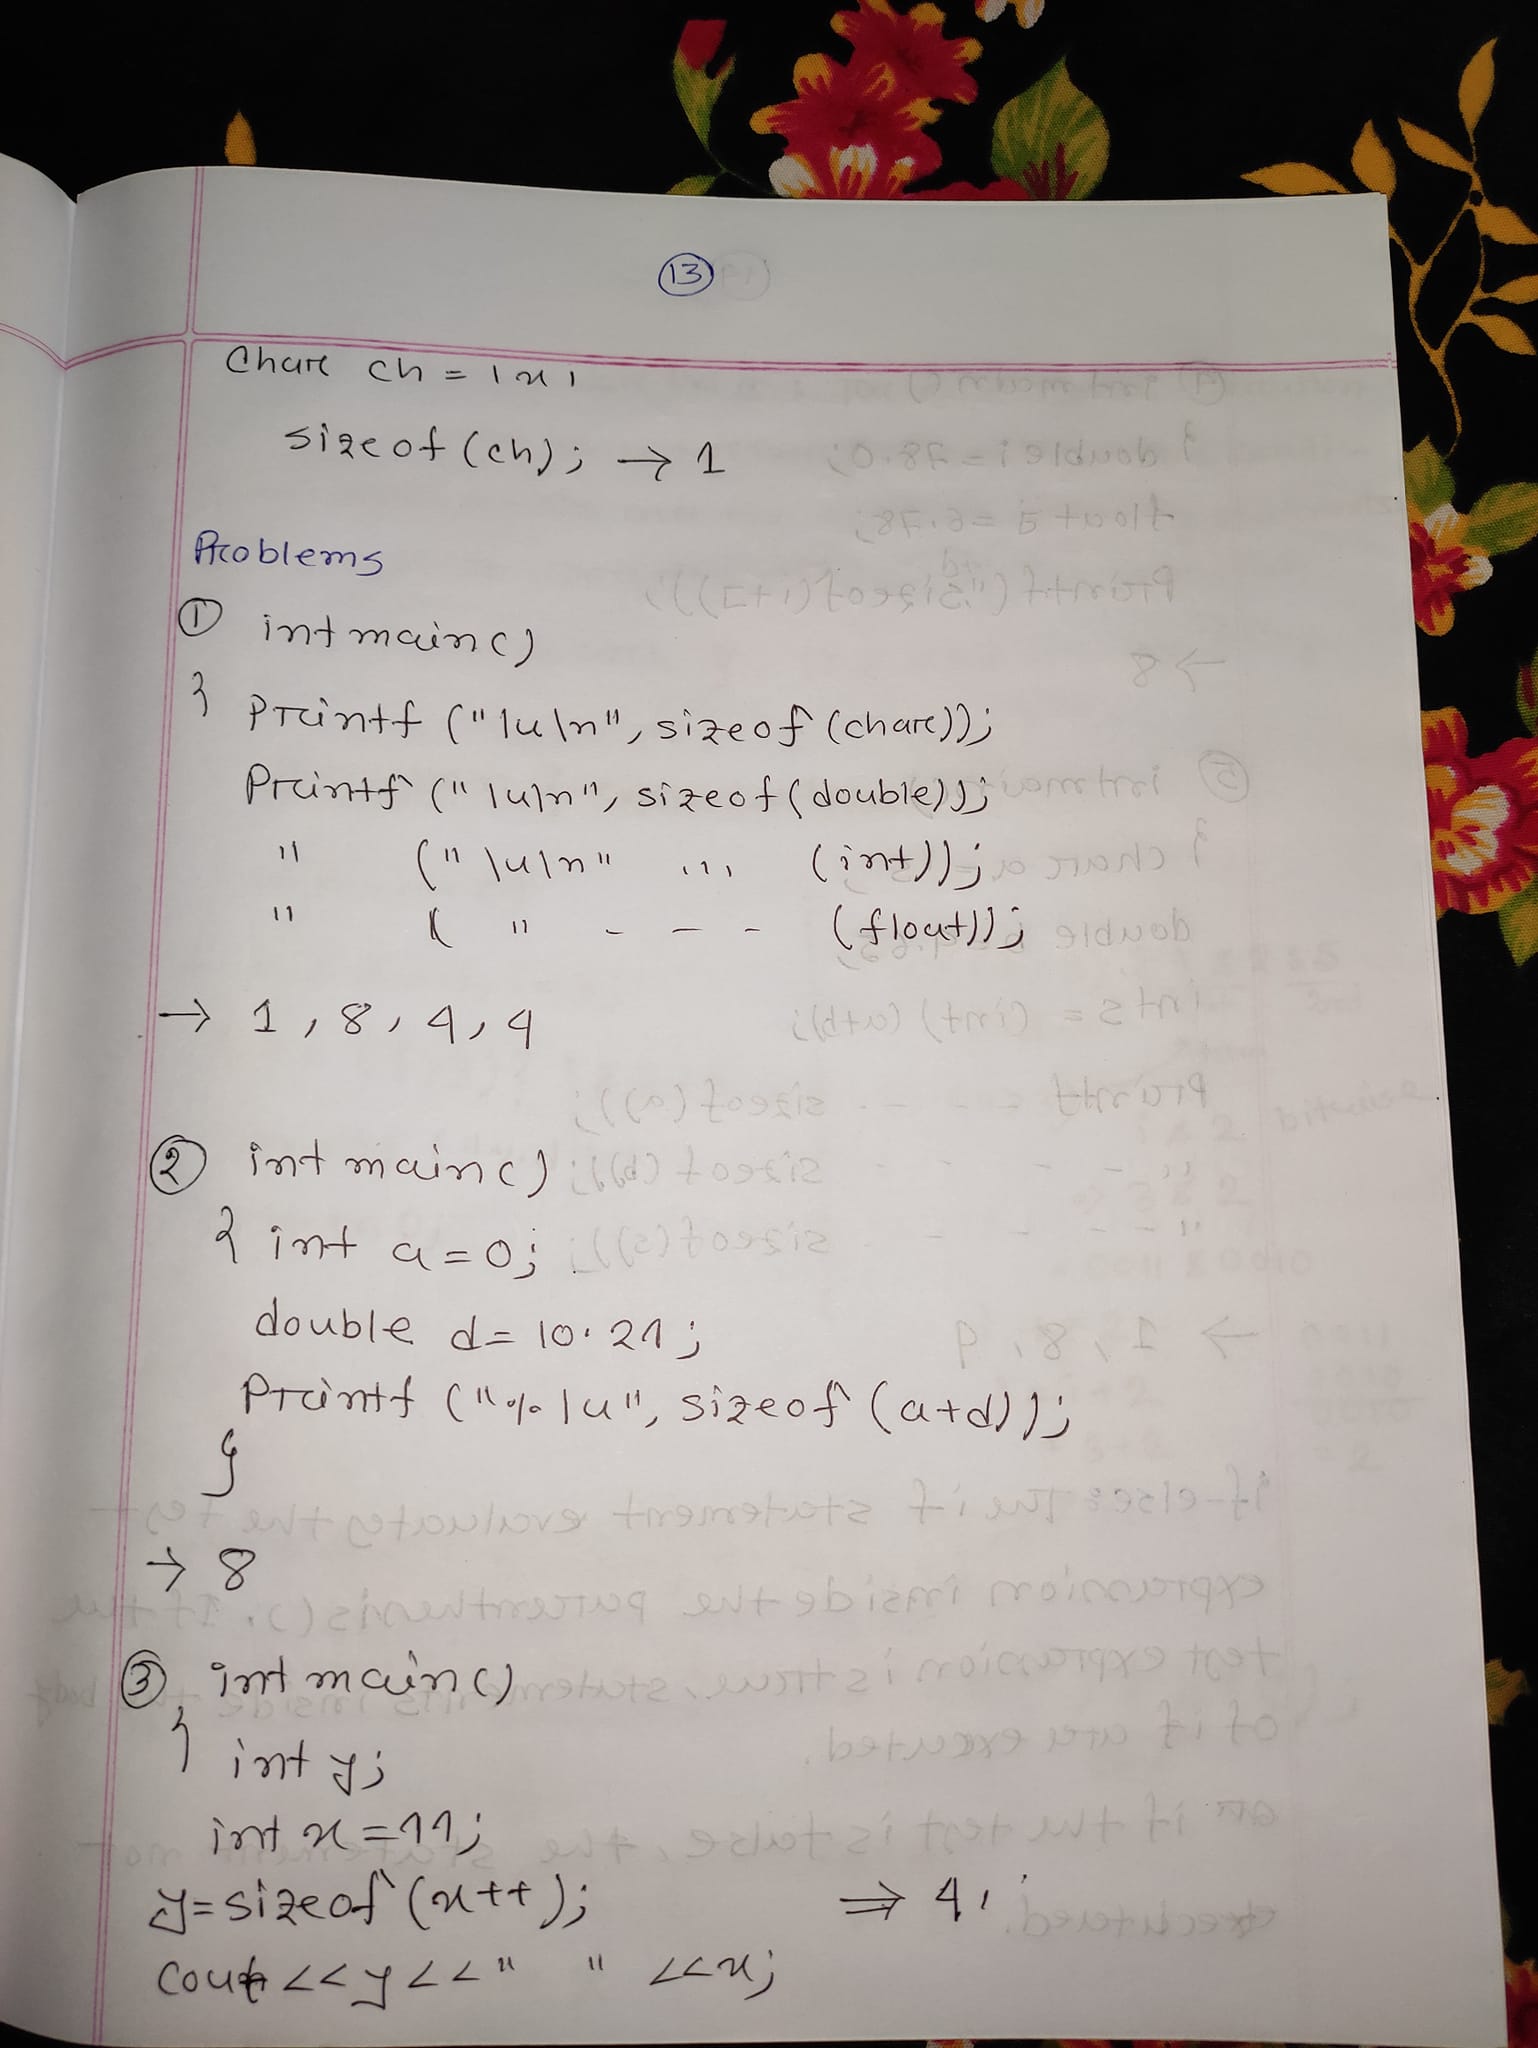 13
Char ch = 'x'
sizeof (ch); → 1
Problems
① int main()
{ Printf ("lu\n", sizeof (char));
Printf ("lu\n", sizeof (double));
" ("lu\n" ''' (int));
" ( " - - - (float));
→ 1, 8, 4, 4
② int main()
{ int a = 0;
double d = 10.21;
Printf ("%lu", sizeof (a+d));
}
→ 8
③ int main()
{ int y;
int x = 11;
y = sizeof (x++); ⇒ 4,
cout << y << " " << x;